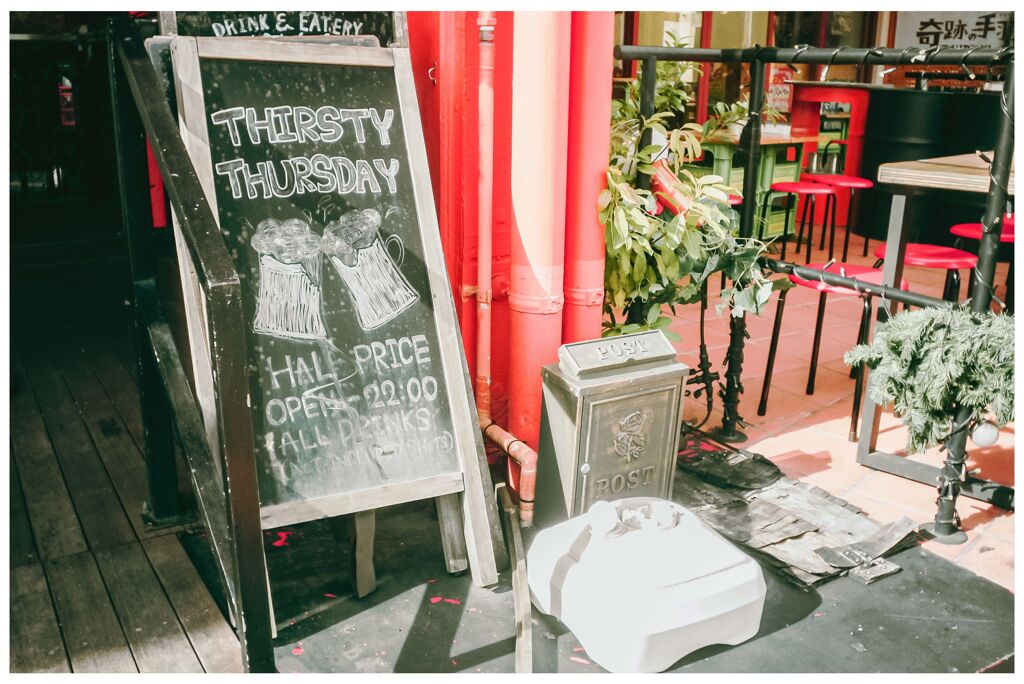 DRINK & EATERY
THIRSTY
THURSDAY
HALF PRICE
OPEN - 22:00
(ALL DRINKS
POST
POST
奇跡の手羽